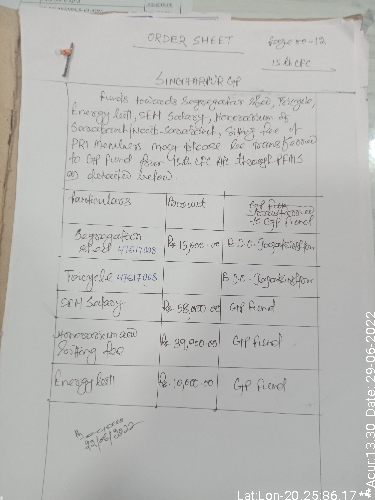 ORDER SHEET
Page no-12
15th CFC
SINGHARPUR GP
Funds towards Segregation shed, Tricycle,
Energy bill, SEM Salary, Honorarium of
Sarpanch/Naib-Sarpanch, Sitting fee of
PRI Members may please be transferred
to GP Fund from 15th CFC A/c through PFMS
as detailed below.
Particulars Amount
to GP Fund
Segregation
shed 47617008 Rs 15,000.00 B.D.O.
Tricycle 47617008 B.D.O.
SEM Salary Rs. 58,000.00 GP Fund
Honorarium and
Sitting fee Rs. 39,900.00 GP Fund
Energy bill Rs. 10,000.00 GP Fund
29/06/2022
Lat:Lon-20.25:86.17
Acur:13.30 Date. 29-06-2022